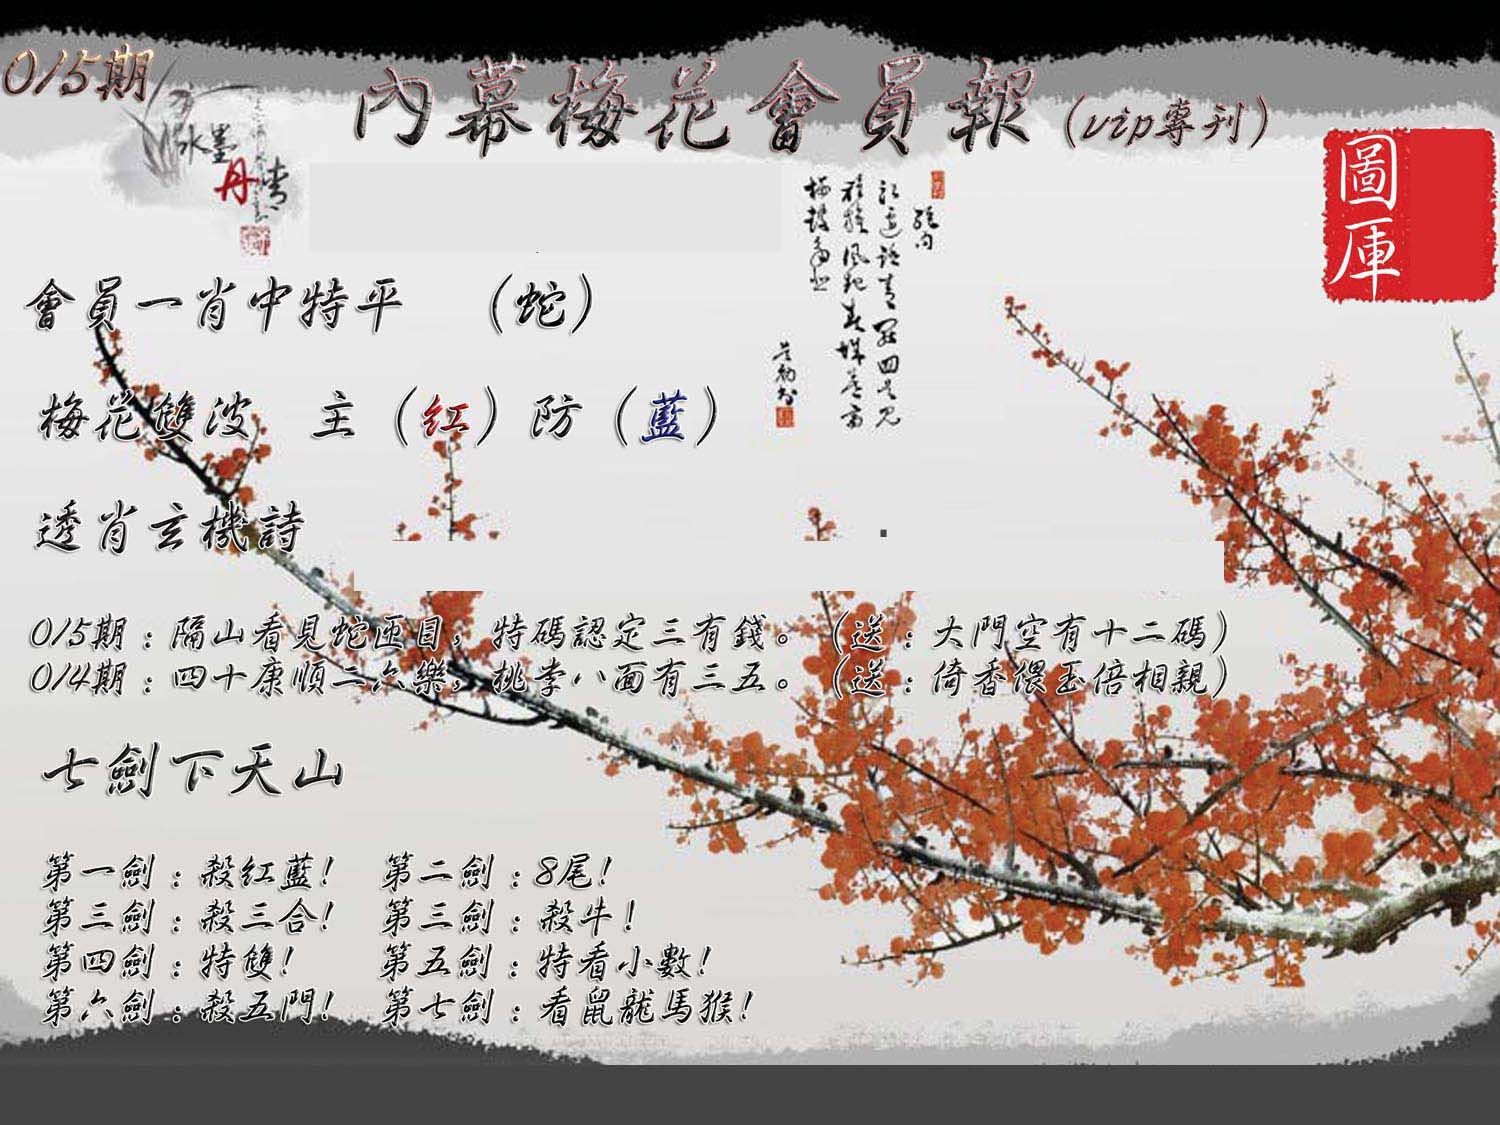 015期
內幕梅花會員報（vip專刊）
水墨
丹青
圖庫
會員一肖中特平 （蛇）
梅花雙波 主（紅）防（藍）
透肖玄機詩
015期：隔山看見蛇匝目，特碼認定三有錢。（送：大門空有十二碼）
014期：四十康順二六樂，桃李八面有三五。（送：倚香偎玉倍相親）
七劍下天山
第一劍：殺紅藍！ 第二劍：8尾！
第三劍：殺三合！ 第三劍：殺牛！
第四劍：特雙！ 第五劍：特看小數！
第六劍：殺五門！ 第七劍：看鼠龍馬猴！